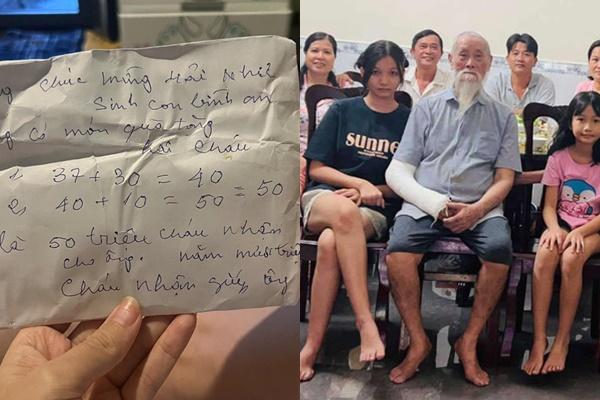 Chúc mừng Hải Nhi
Sinh con bình an
Có món quà tặng
hai cháu
1, 37 + 30 = 40
2, 40 + 10 = 50 = 50
là 50 triệu cháu nhận
cho ông. năm mươi triệu
Cháu nhận giúp ông
sunne